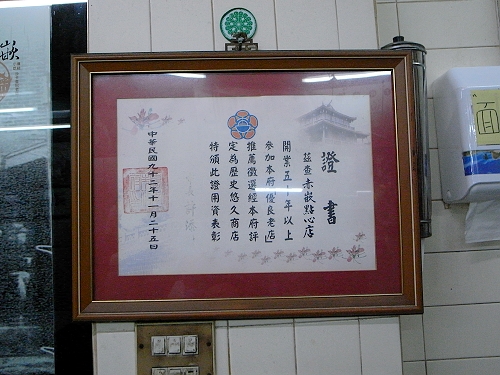 證書
茲查赤嵌點心店
開業五十年以上
參加本府優良老店
推薦徵選經本府評
定為歷史悠久商店
特頒此證用資表彰
中華民國九十二年十一月二十五日
嵌
面